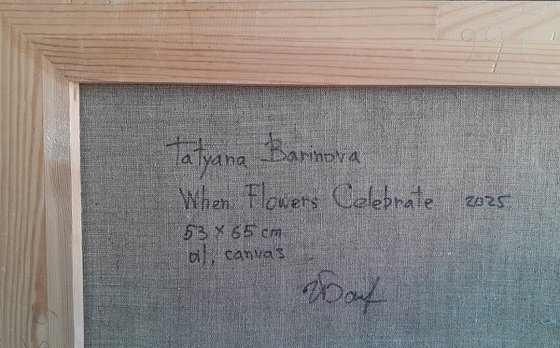 Tatyana Barinova
When Flowers Celebrate 2025
53 x 65 cm
oil, canvas